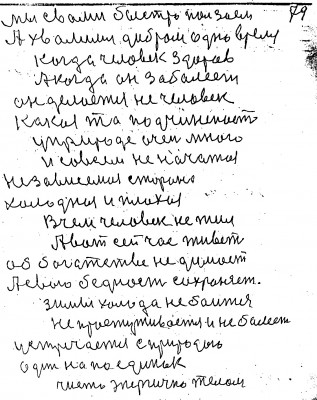 79
мы с вами быстро ползаем
А хвалили диброй одно время
Когда человек здоров
А когда он заболеет
он делается не человек
Какая та подчиненост
уприроде очен много
и совсем не начатая
независемая сторона
холодная и плохая
В чем человек не жил
А вот сейчас живет
об богатстве не думает
А евого бедност сохраняет.
зимы холода не боится
не простуживается и не балеет
и стречается с природою
один на поединык
чисто энергично телом